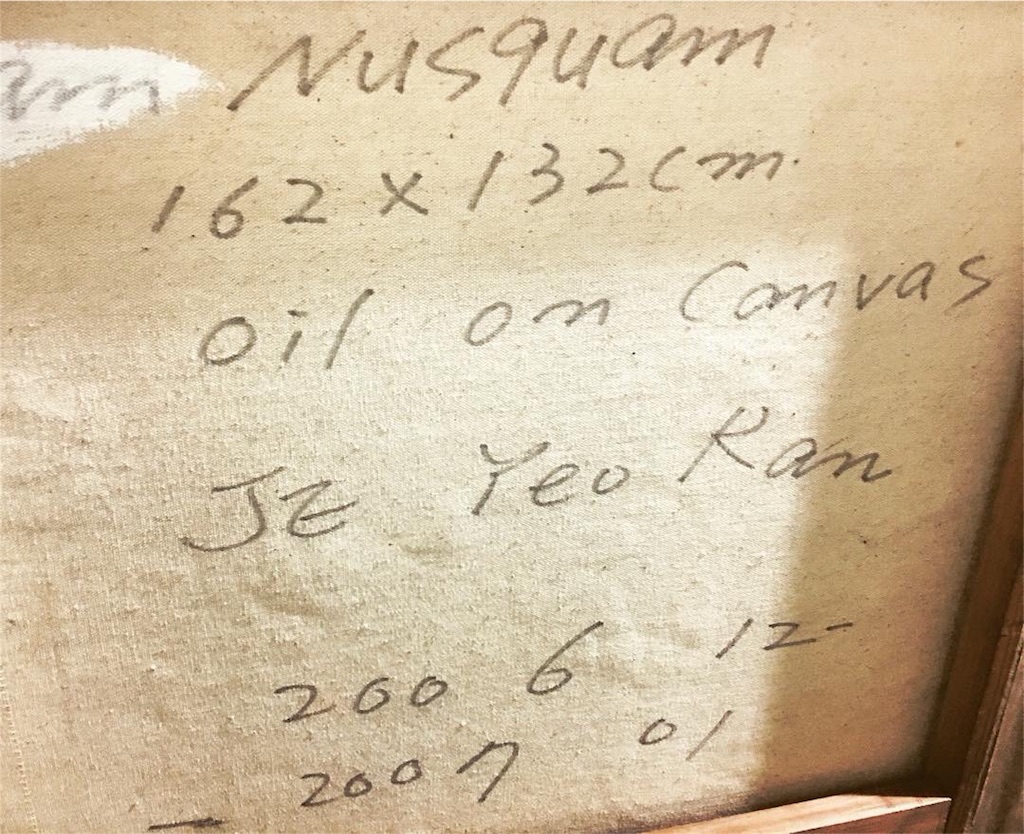 Nusquam
162 x 132cm
oil on Canvas
JE Yeo Ran
2006 12-
- 2007 01